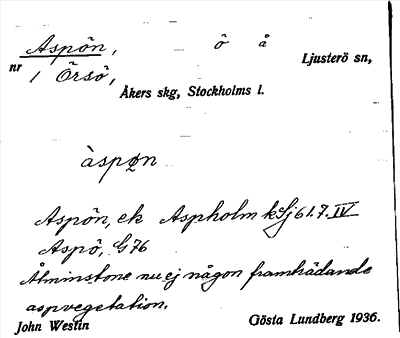 Aspön, ö å Ljusterö sn,
nr 1 Örsö,
Åkers skg, Stockholms l.
àspøn
Aspön, ek Aspholm kSj 61.7.IV
Aspö, G 76
Åtminstone nu ej någon framträdande
aspvegetation.
John Westin Gösta Lundberg 1936.